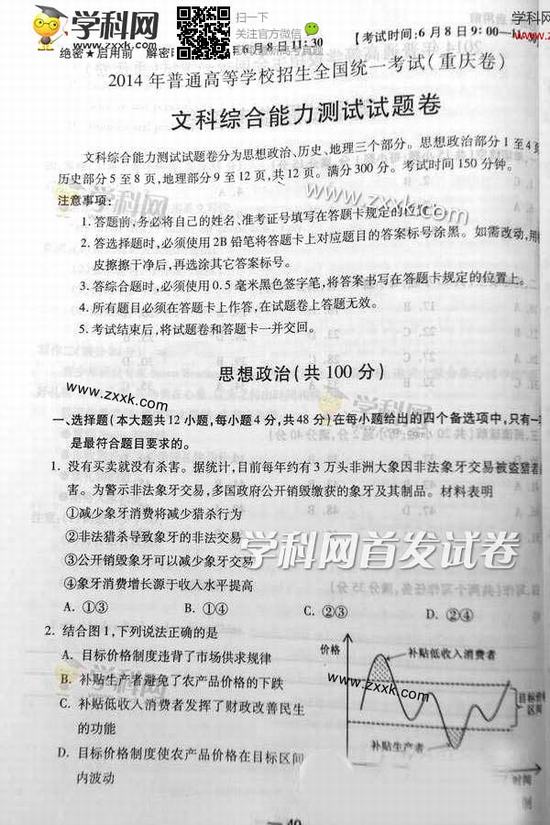 学科网
www.zxxk.com
扫一下
【考试时间:6月8日9:00—11:
绝密★启用前 解密时 年6月8日11:30
2014年普通高等学校招生全国统一考试(重庆卷)
文科综合能力测试试题卷
文科综合能力测试试题卷分为思想政治、历史、地理三个部分。思想政治部分1至4页
历史部分5至8页,地理部分9至12页,共12页。满分300分。考试时间150分钟。
注意事项:
1.答题前,务必将自己的姓名、准考证号填写在答题卡规定的位置上。
2.答选择题时,必须使用2B铅笔将答题卡上对应题目的答案标号涂黑。如需改动,用橡
皮擦擦干净后,再选涂其它答案标号。
3.答综合题时,必须使用0.5毫米黑色签字笔,将答案书写在答题卡规定的位置上。
4.所有题目必须在答题卡上作答,在试题卷上答题无效。
5.考试结束后,将试题卷和答题卡一并交回。
学科网
www.zxxk.com
思想政治(共100分)
www.zxxk.com
学科网
一、选择题(本大题共12小题,每小题4分,共48分)在每小题给出的四个备选项中,只有一
是最符合题目要求的。
1.没有买卖就没有杀害。据统计,目前每年约有3万头非洲大象因非法象牙交易被盗猎者
害。为警示非法象牙交易,多国政府公开销毁缴获的象牙及其制品。材料表明
①减少象牙消费将减少猎杀行为
②非法猎杀导致象牙的非法交易
③公开销毁象牙可以减少象牙交易
④象牙消费增长源于收入水平提高
学科网首发试卷
A. ①③ B. ①④ C. ②③ D. ②④
2.结合图1,下列说法正确的是
A. 目标价格制度违背了市场供求规律
B. 补贴生产者避免了农产品价格的下跌
C. 补贴低收入消费者发挥了财政改善民生
的功能
D. 目标价格制度使农产品价格在目标区间
内波动
价格
补贴低收入消费者
目标价
区间
补贴生产者
时间
学科网
www.zxxk.com
— 40